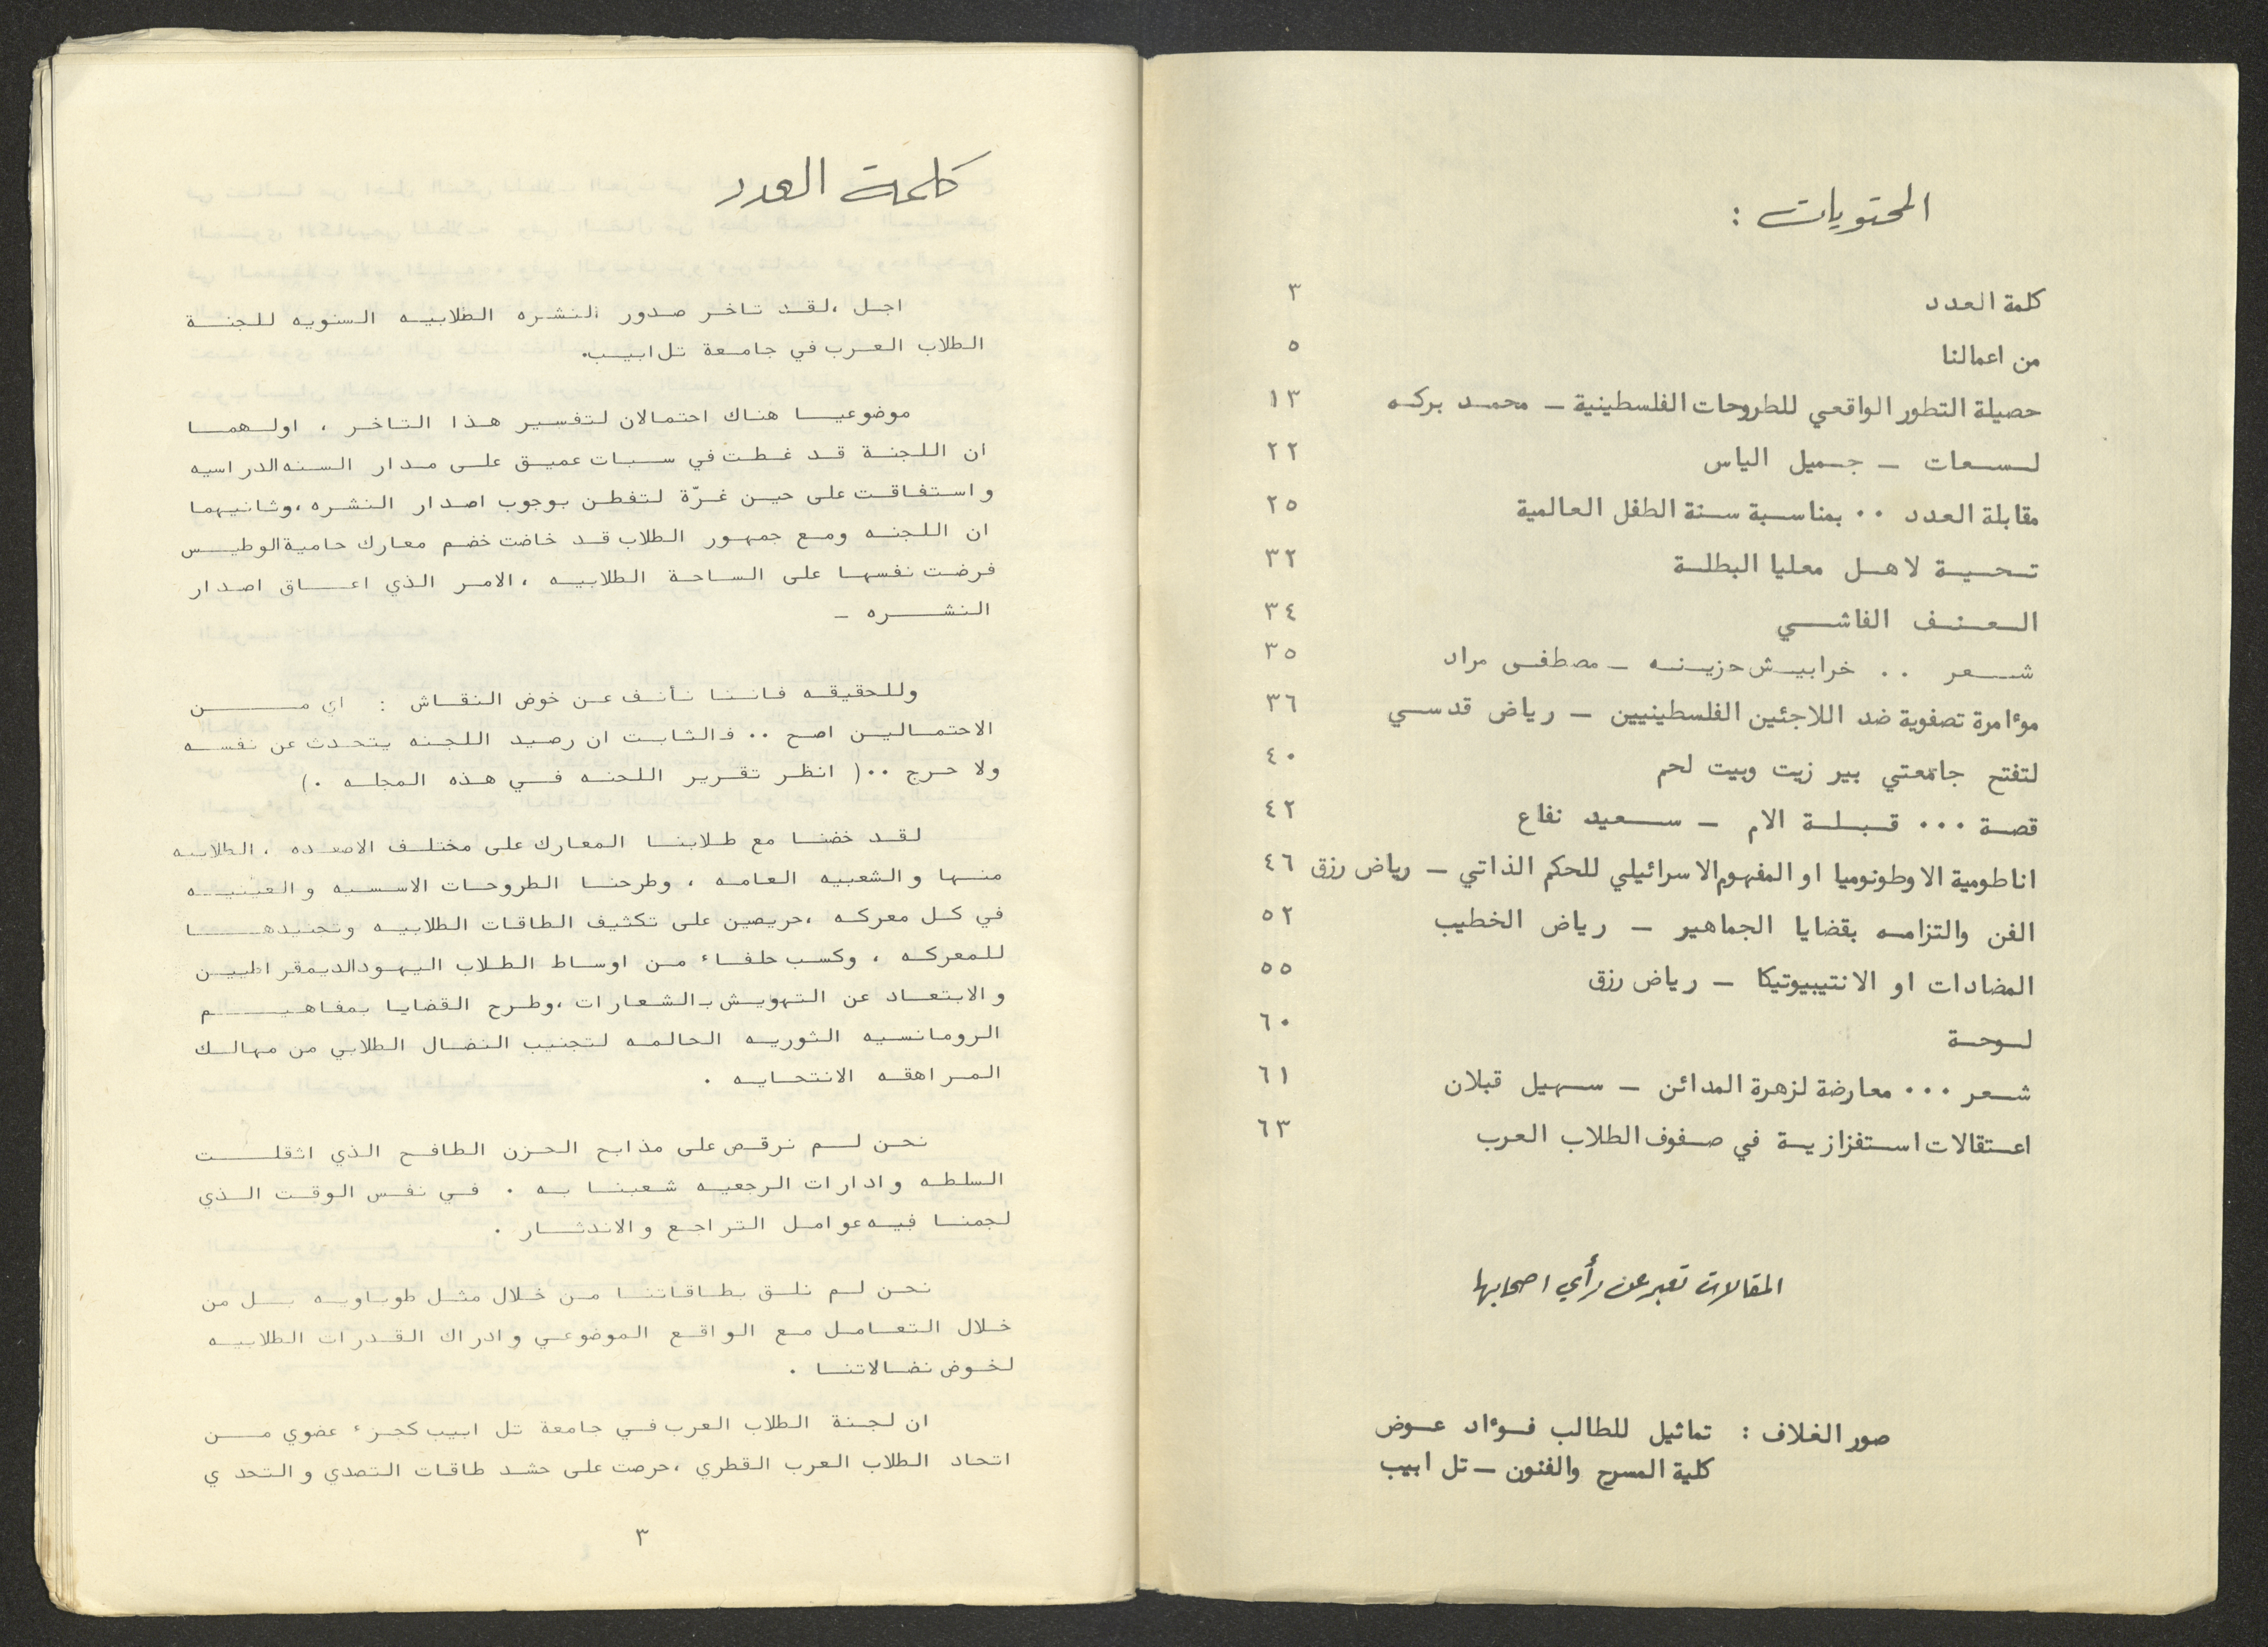 المحتويات :
كلمة العدد ٣
من اعمالنا ٥
حصيلة التطور الواقعي للطروحات الفلسطينية – محمد بركه ١٣
لسعات – جميل الياس ٢٢
مقابلة العدد ٠٠ بمناسبة سنة الطفل العالمية ٢٥
تحية لاهل معليا البطلة ٣٢
العنف الفاشي ٣٤
شعر ٠٠ خرابيش حزينه – مصطفى مراد ٣٥
موءامرة تصفوية ضد اللاجئين الفلسطينيين – رياض قدسي ٣٦
لتفتح جامعتي بير زيت وبيت لحم ٤٠
قصة ٠٠٠ قبلة الام – سعيد نفاع ٤٢
اناطومية الاوطونوميا او المفهوم الاسرائيلي للحكم الذاتي – رياض رزق ٤٦
الفن والتزامه بقضايا الجماهير – رياض الخطيب ٥٢
المضادات او الانتيبيوتيكا – رياض رزق ٥٥
لوحة ٦٠
شعر ٠٠٠ معارضة لزهرة المدائن – سهيل قبلان ٦١
اعتقالات استفزازية في صفوف الطلاب العرب ٦٣
المقالات تعبر عن رأي اصحابها
صور الغلاف : تماثيل للطالب فوءاد عوض
كلية المسرح والفنون – تل ابيب
كلمة العدد
اجل ،لقد تاخر صدور النشره الطلابيه السنويه للجنة
الطلاب العرب في جامعة تل ابيب٠
موضوعيا هناك احتمالان لتفسير هذا التاخر ، اولهما
ان اللجنة قد غطت في سبات عميق على مدار السنه الدراسيه
واستفاقت على حين غرّة لتفطن بوجوب اصدار النشره ،وثانيهما
ان اللجنه ومع جمهور الطلاب قد خاضت خضم معارك حامية الوطيس
فرضت نفسها على الساحة الطلابيه ، الامر الذي اعاق اصدار
النشره –
وللحقيقه فاننا نأنف عن خوض النقاش : اي من
الاحتمالين اصح ٠٠ فالثابت ان رصيد اللجنه يتحدث عن نفسه
ولا حرج ٠٠( انظر تقرير اللجنه في هذه المجله ٠)
لقد خضنا مع طلابنا المعارك على مختلف الاصعده ، الطلابيه
منها والشعبيه العامه ، وطرحنا الطروحات الاسسيه والعينيه
في كل معركه ،حريصين على تكثيف الطاقات الطلابيه وتجنيدها
للمعركه ، وكسب حلفاء من اوساط الطلاب اليهود الديمقراطيين
والابتعاد عن التهويش بالشعارات ،وطرح القضايا بمفاهيم
الرومانسيه الثوريه الحالمه لتجنيب النضال الطلابي من مهالك
المراهقه الانتحايه ٠
نحن لم نرقص على مذابح الحزن الطافح الذي اثقلت
السلطه وادارات الرجعيه شعبنا به ٠ في نفس الوقت الذي
لجمنا فيه عوامل التراجع والاندثار ٠
نحن لم نلق بطاقاتنا من خلال مثل طوباويه بل من
خلال التعامل مع الواقع الموضوعي وادراك القدرات الطلابيه
لخوض نضالاتنا ٠
ان لجنة الطلاب العرب في جامعة تل ابيب كجزء عضوي من
اتحاد الطلاب العرب القطري ،حرصت على حشد طاقات التصدي والتحدي
٣